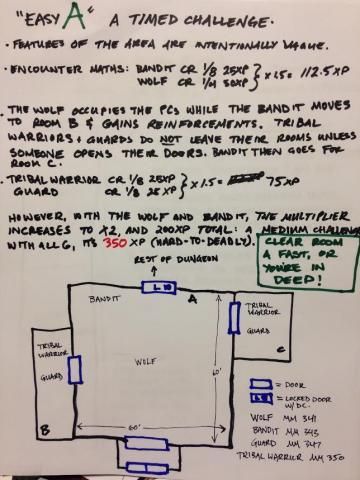 "EASY A" A TIMED CHALLENGE.
• FEATURES OF THE AREA ARE INTENTIONALLY VAGUE.
• ENCOUNTER MATHS: BANDIT CR 1/8 25XP } x 1.5 = 112.5 XP
WOLF CR 1/4 50XP
• THE WOLF OCCUPIES THE PCS WHILE THE BANDIT MOVES
TO ROOM B & GAINS REINFORCEMENTS. TRIBAL
WARRIORS + GUARDS DO NOT LEAVE THEIR ROOMS UNLESS
SOMEONE OPENS THEIR DOORS. BANDIT THEN GOES FOR
ROOM C.
• TRIBAL WARRIOR CR 1/8 25XP } x 1.5 = 75XP
GUARD CR 1/8 25XP
HOWEVER, WITH THE WOLF AND BANDIT, THE MULTIPLIER
INCREASES TO X2, AND 200XP TOTAL: A MEDIUM CHALLENGE
WITH ALL 6, IT'S 350 XP (HARD-TO-DEADLY).
CLEAR ROOM
A FAST, OR
YOU'RE IN
DEEP!
REST OF DUNGEON
BANDIT
L 10
A
TRIBAL
WARRIOR
GUARD
C
TRIBAL
WARRIOR
GUARD
B
WOLF
60'
60'
= DOOR
= LOCKED DOOR
W/DC.
WOLF MM 341
BANDIT MM 343
GUARD MM 347
TRIBAL WARRIOR MM 350